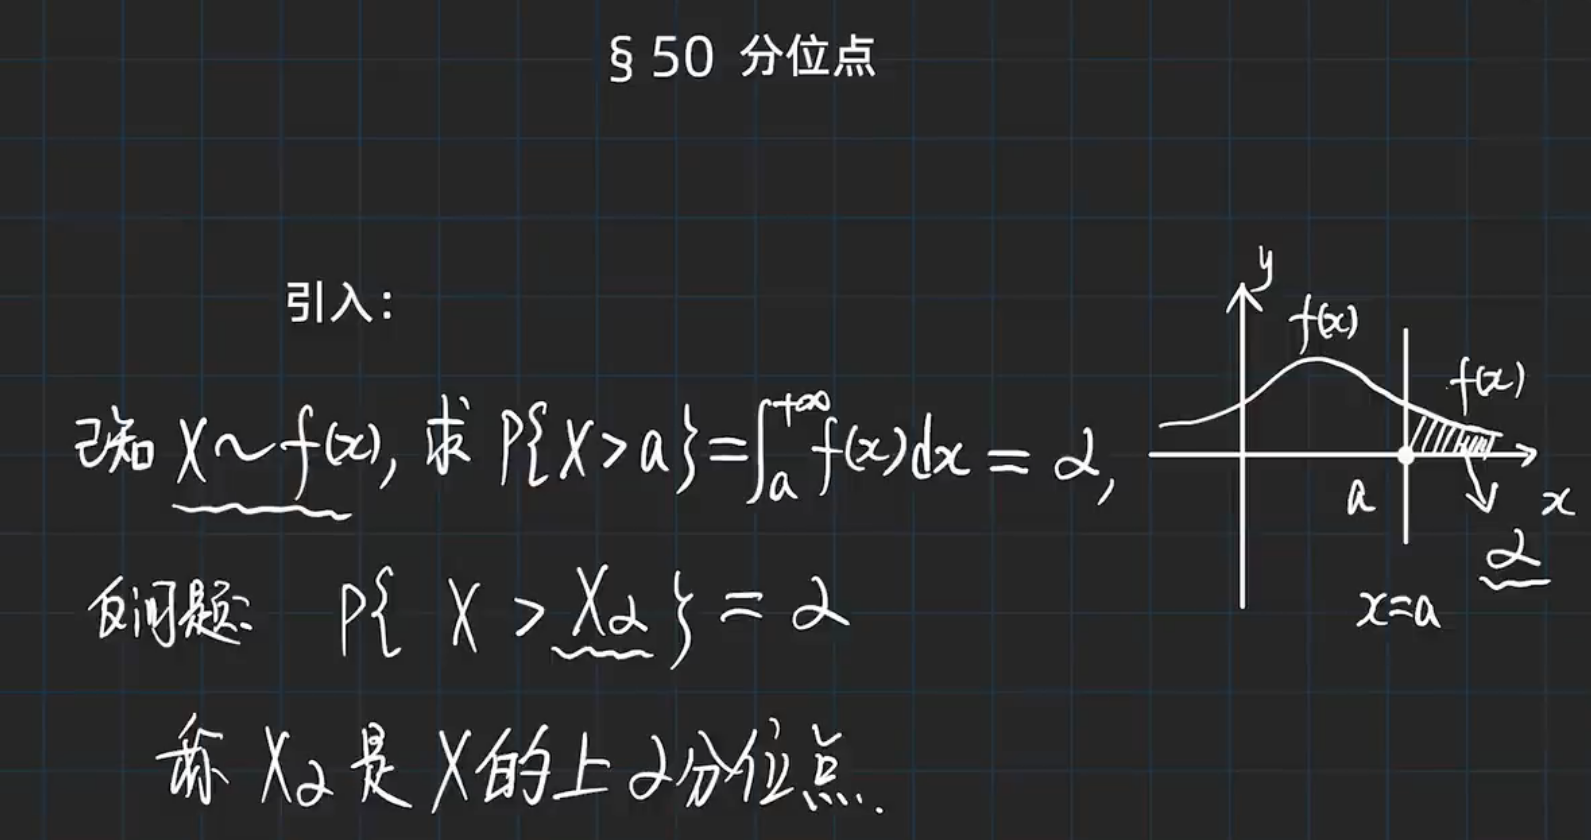 § 50 分位点
引入：
已知 X~f(x), 求 P{X>a}=∫ₐ^{+∞} f(x)dx = α,
反问题: P{ X > Xα } = α
称 Xα 是 X 的上 α 分位点.
y
f(x)
f(x)
a
x
α
x=a